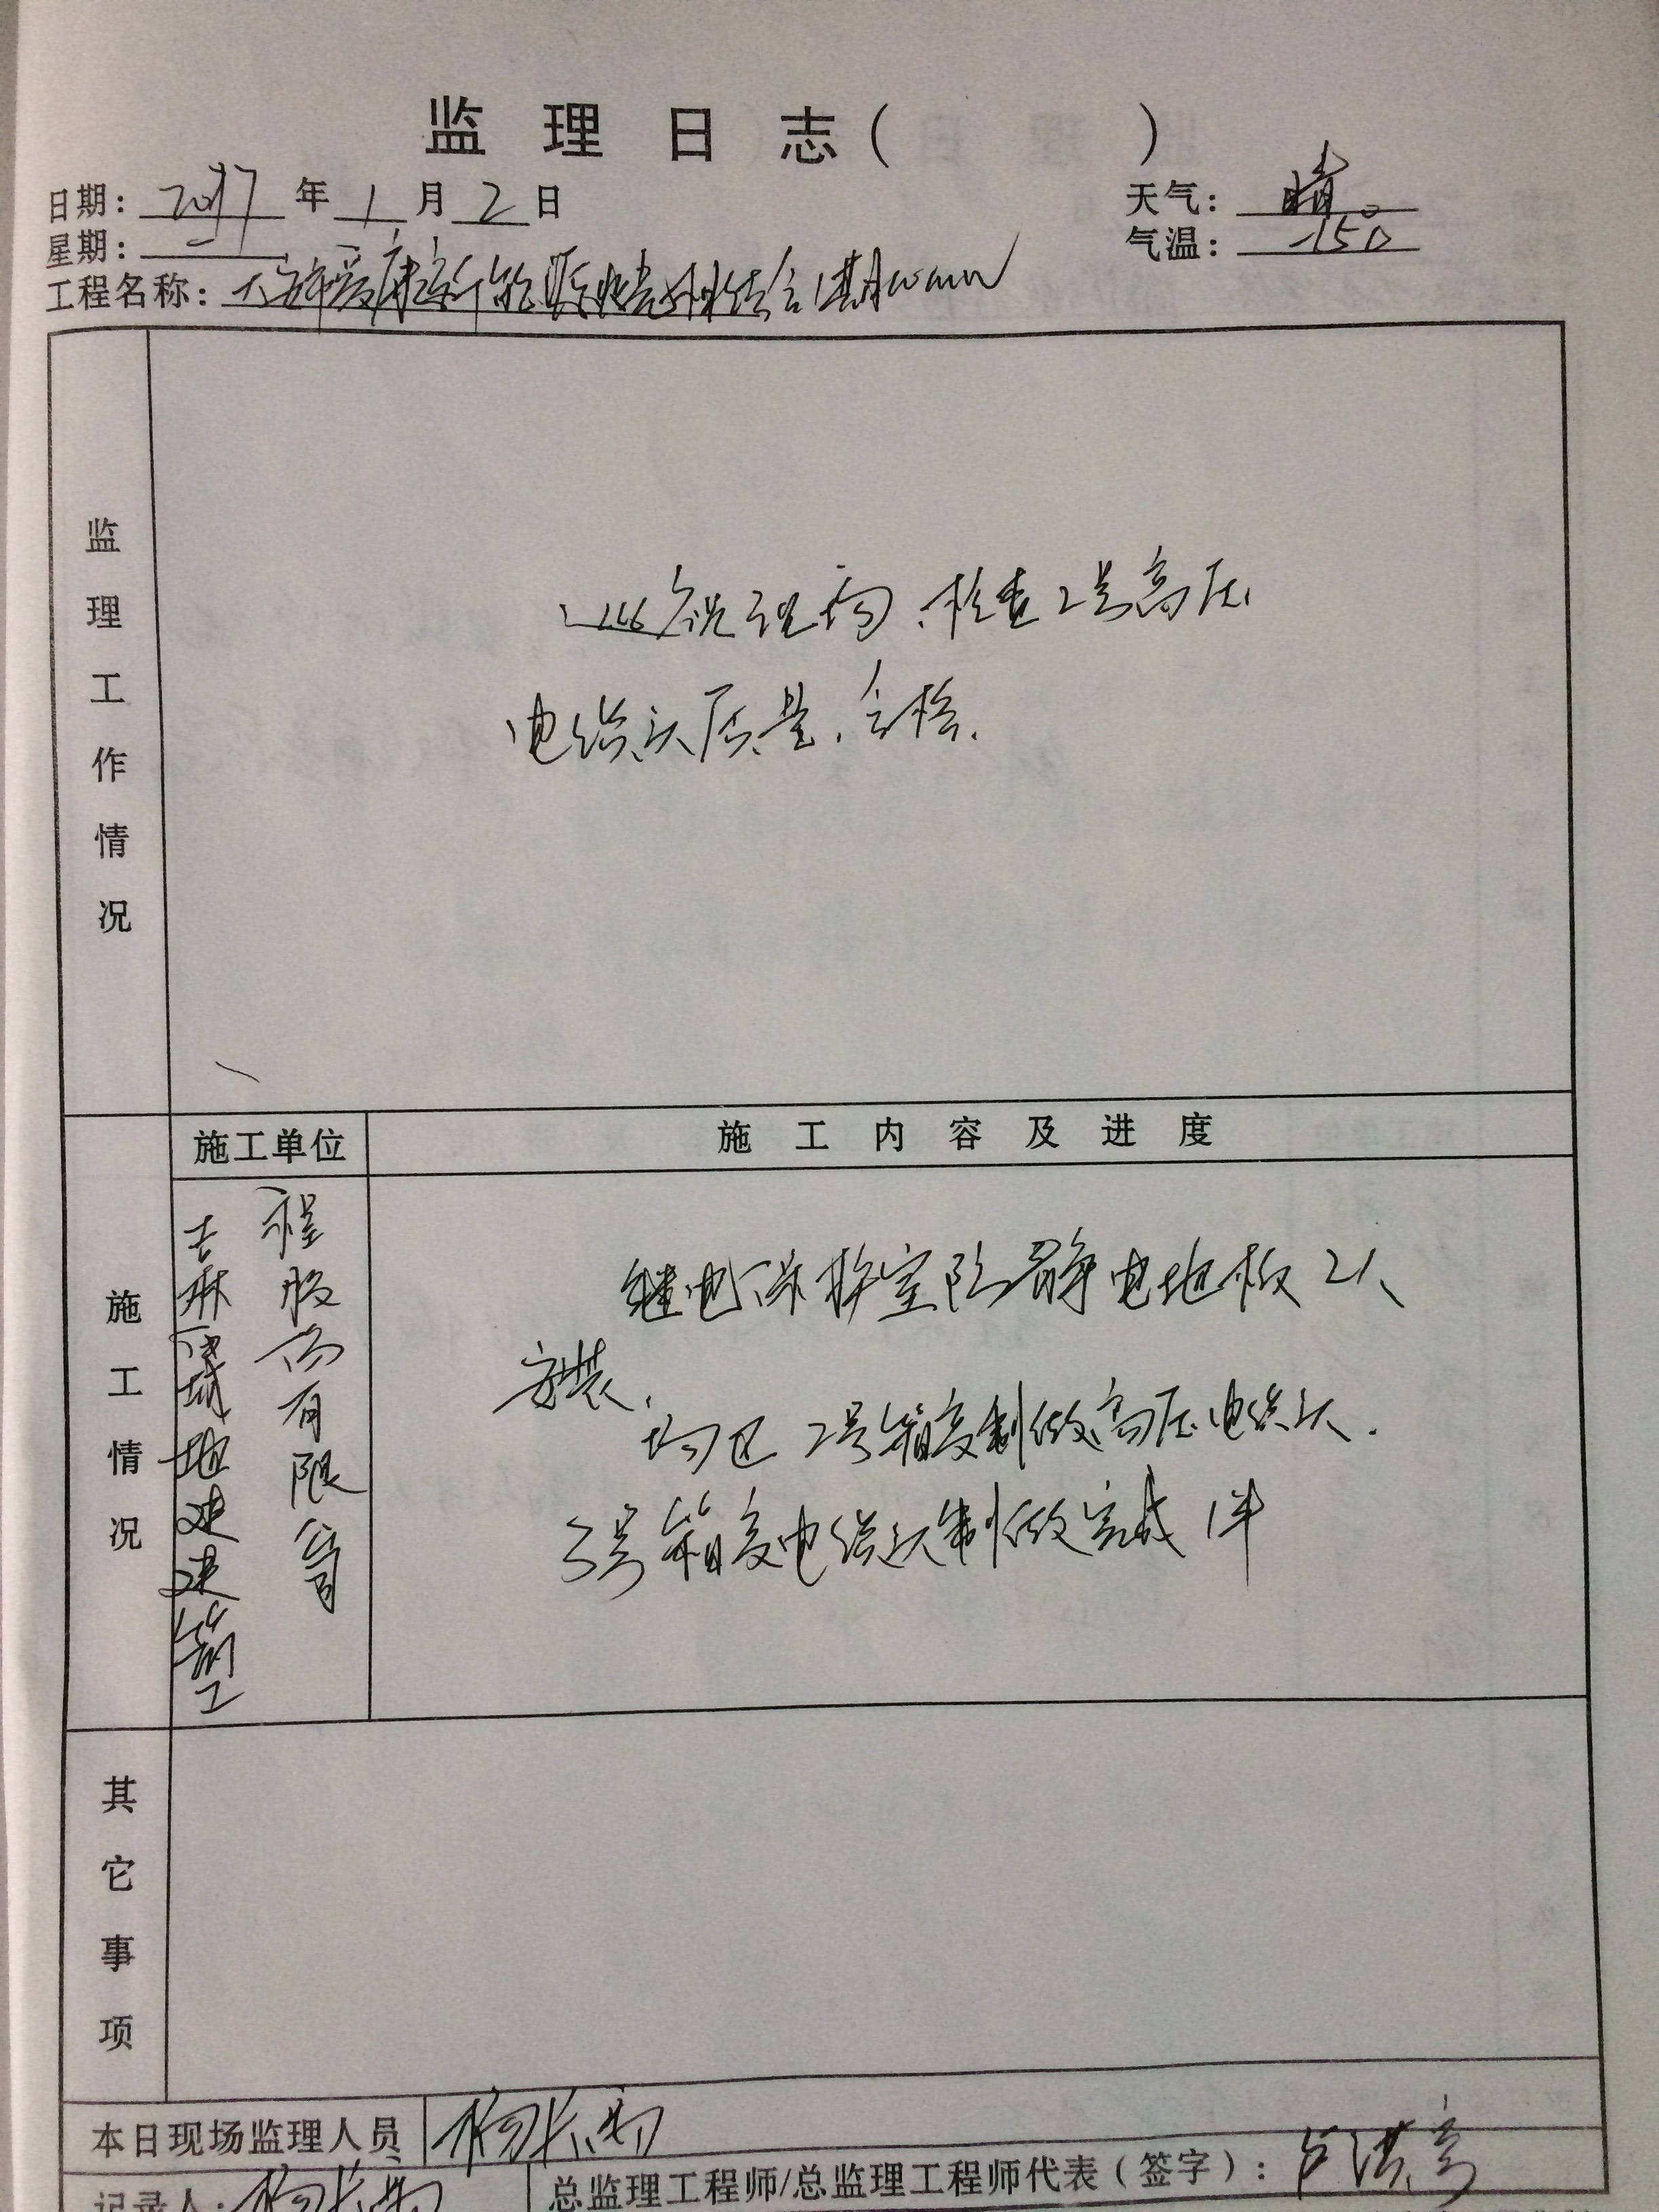 监理日志(        )
日期: 2017 年 1 月 2 日
天气: 晴
星期: 一
气温: -15°
工程名称: 大安市爱康新能源
监理工作情况
巡视现场,检查2号高压
电缆头质量,合格.
施工情况
施工单位
施工内容及进度
吉林城地建建筑工
程股份有限公司
继电保护室防静电地板2人
安装.
场区2号箱变制做高压电缆头.
3号箱变电缆头制做完成1半
其它事项
本日现场监理人员
杨
记录人: 杨
总监理工程师/总监理工程师代表(签字): 卢洪